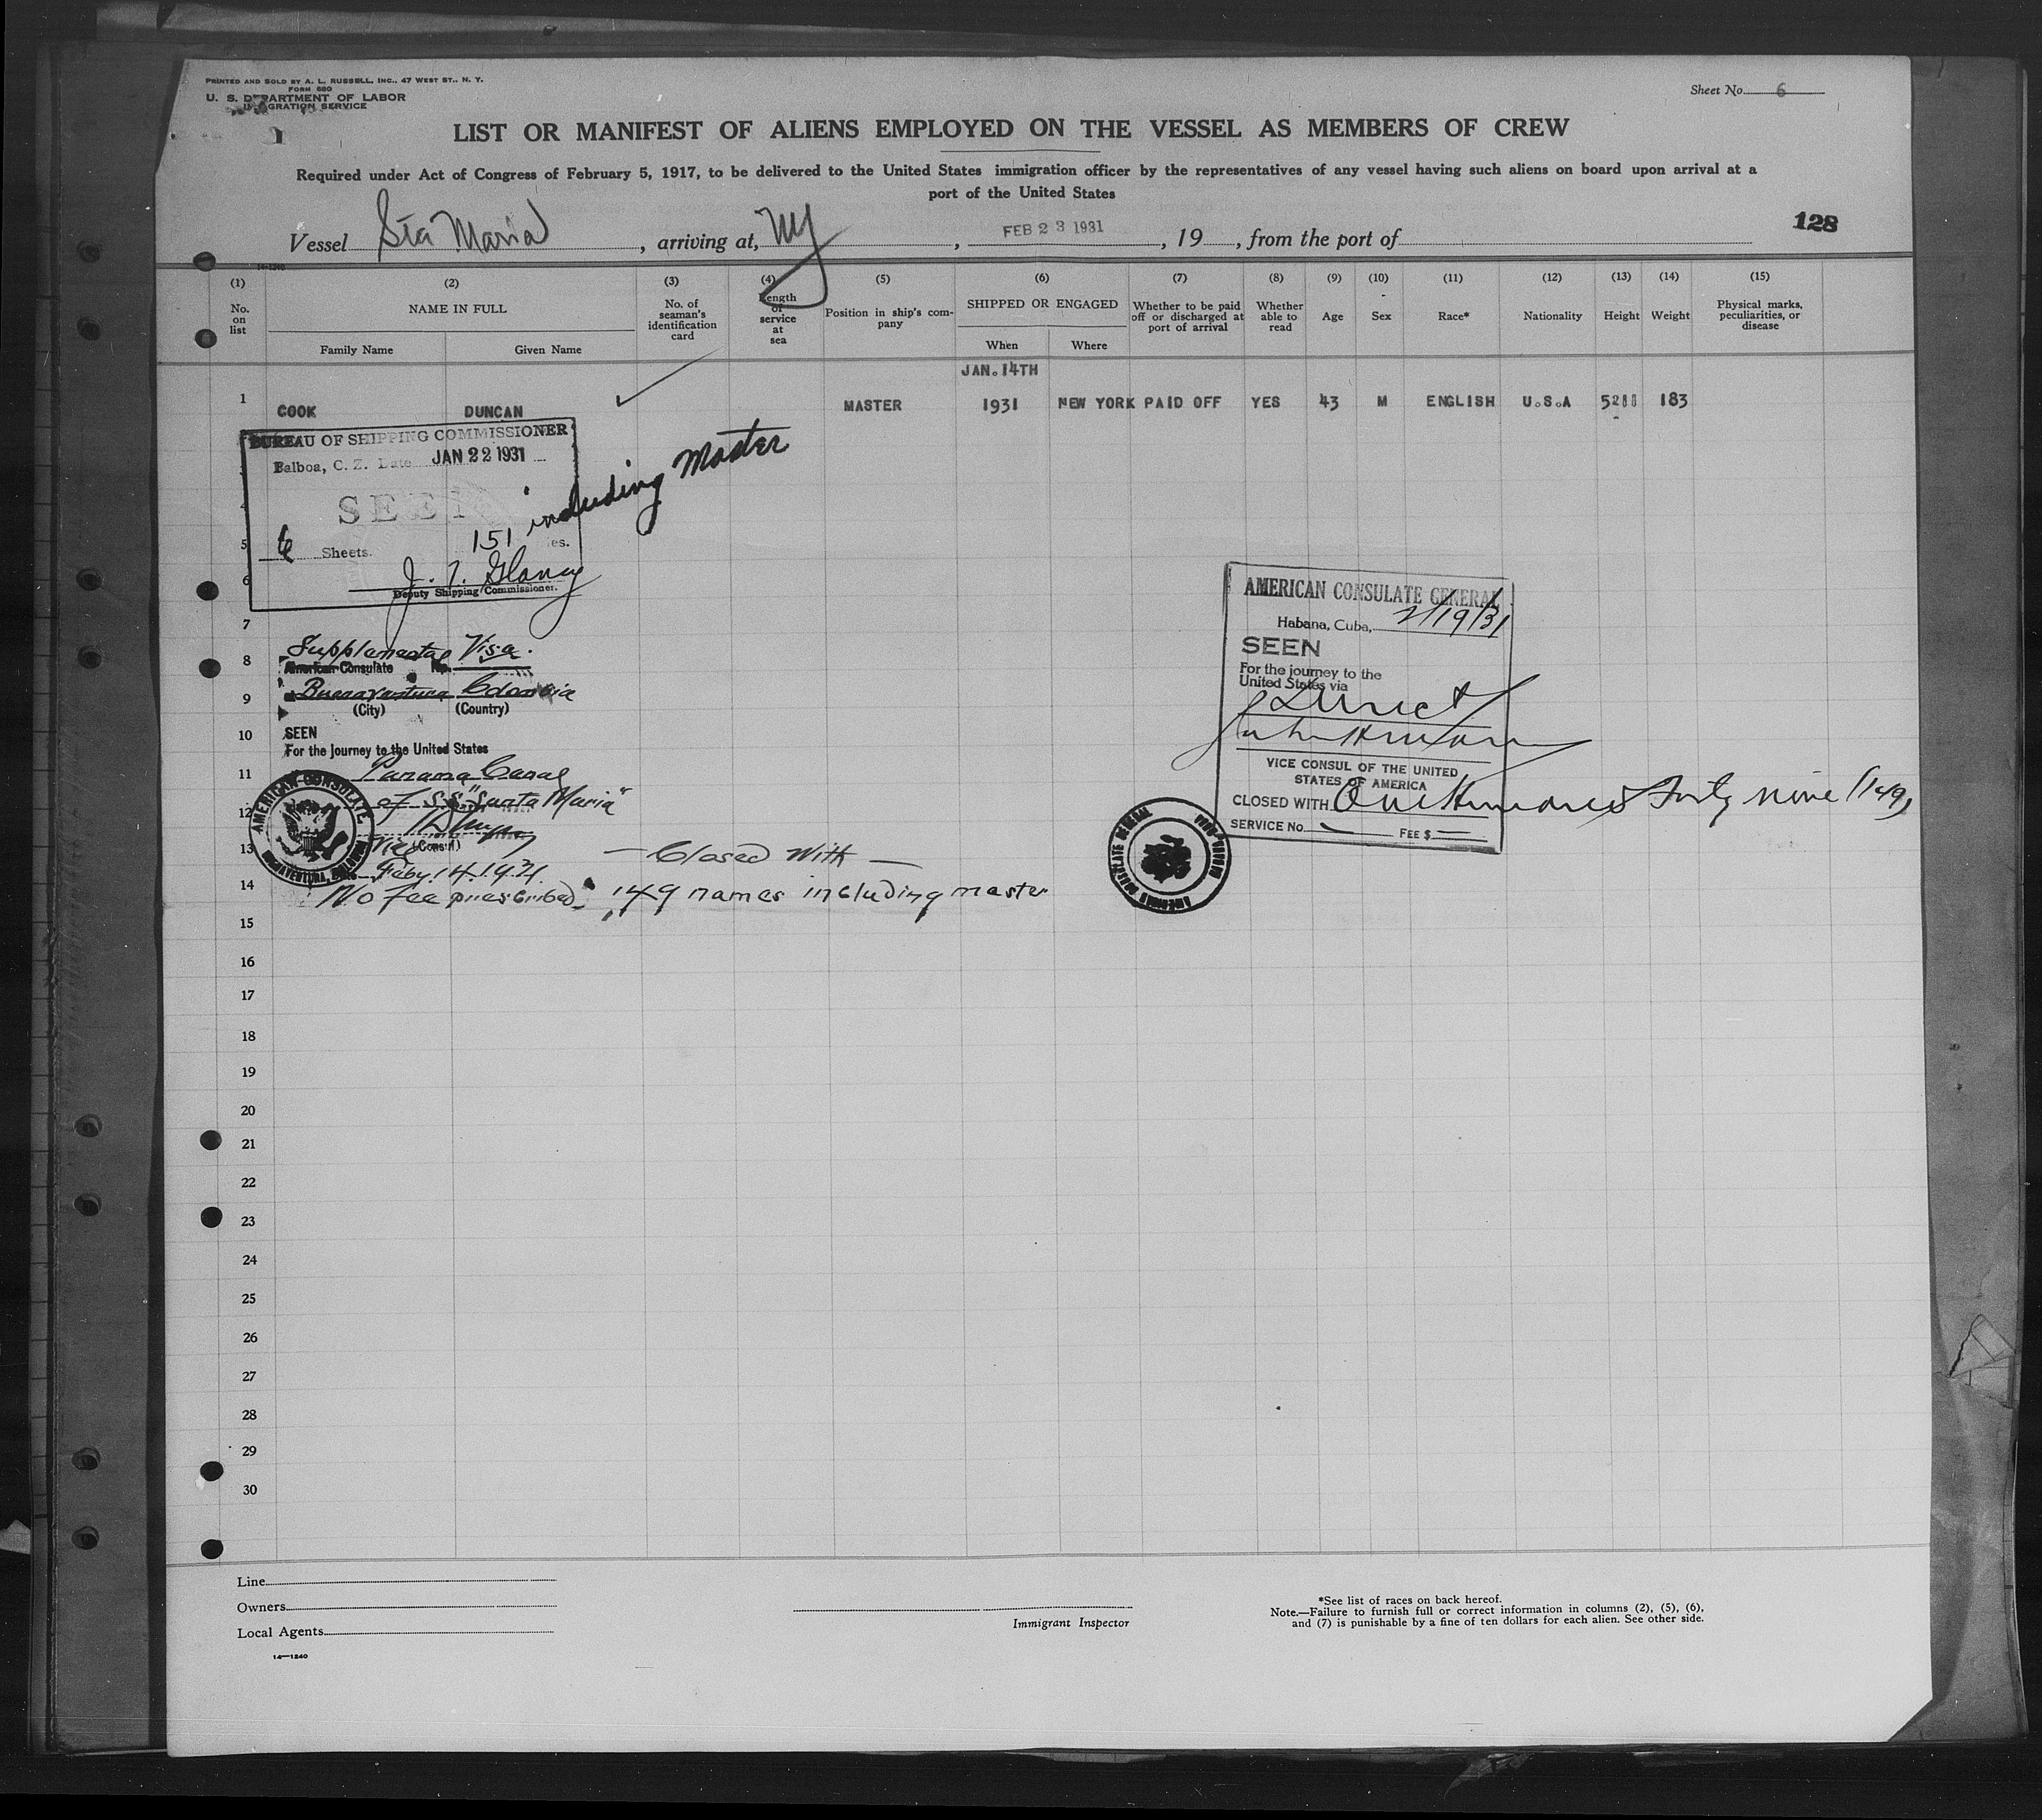 PRINTED AND SOLD BY A. L. RUSSELL, INC., 47 WEST ST., N. Y.
FORM 680
U. S. DEPARTMENT OF LABOR
IMMIGRATION SERVICE
Sheet No. 6
LIST OR MANIFEST OF ALIENS EMPLOYED ON THE VESSEL AS MEMBERS OF CREW
Required under Act of Congress of February 5, 1917, to be delivered to the United States immigration officer by the representatives of any vessel having such aliens on board upon arrival at a
port of the United States
128
Vessel Sta Maria, arriving at, NY, FEB 23 1931, 19, from the port of
14-1240
(1) (2) (3) (4) (5) (6) (7) (8) (9) (10) (11) (12) (13) (14) (15)
No. on list
NAME IN FULL
Family Name Given Name
No. of seaman's identification card
Length of service at sea
Position in ship's company
SHIPPED OR ENGAGED
When Where
Whether to be paid off or discharged at port of arrival
Whether able to read
Age
Sex
Race*
Nationality
Height
Weight
Physical marks, peculiarities, or disease
JAN. 14TH
1 COOK DUNCAN MASTER 1931 NEW YORK PAID OFF YES 43 M ENGLISH U.S.A 5211 183
BUREAU OF SHIPPING COMMISSIONER
Balboa, C. Z. Date JAN 22 1931
SEEN
6 Sheets. 151 es. including Master
Deputy Shipping Commissioner.
4
5
6
7
8
9
10
11
12
13
14
Supplemental Visa.
American Consulate No.
Buenaventura Colombia
(City) (Country)
SEEN
For the journey to the United States
Panama Canal
of S.S. "Santa Maria"
Vice (Consul)
Feby. 14. 1931
No fee prescribed.
AMERICAN CONSULATE
BUENAVENTURA, COLOMBIA
— Closed With —
149 names including master
AMERICAN CONSULATE GENERAL
Habana, Cuba, 2/19/31
SEEN
For the journey to the
United States via
Direct
VICE CONSUL OF THE UNITED
STATES OF AMERICA
CLOSED WITH One Hundred Forty nine (149)
SERVICE No. — FEE $ —
AMERICAN CONSULATE GENERAL
HABANA, CUBA
15
16
17
18
19
20
21
22
23
24
25
26
27
28
29
30
Line
Owners
Local Agents
14—1240
Immigrant Inspector
*See list of races on back hereof.
Note.—Failure to furnish full or correct information in columns (2), (5), (6),
and (7) is punishable by a fine of ten dollars for each alien. See other side.